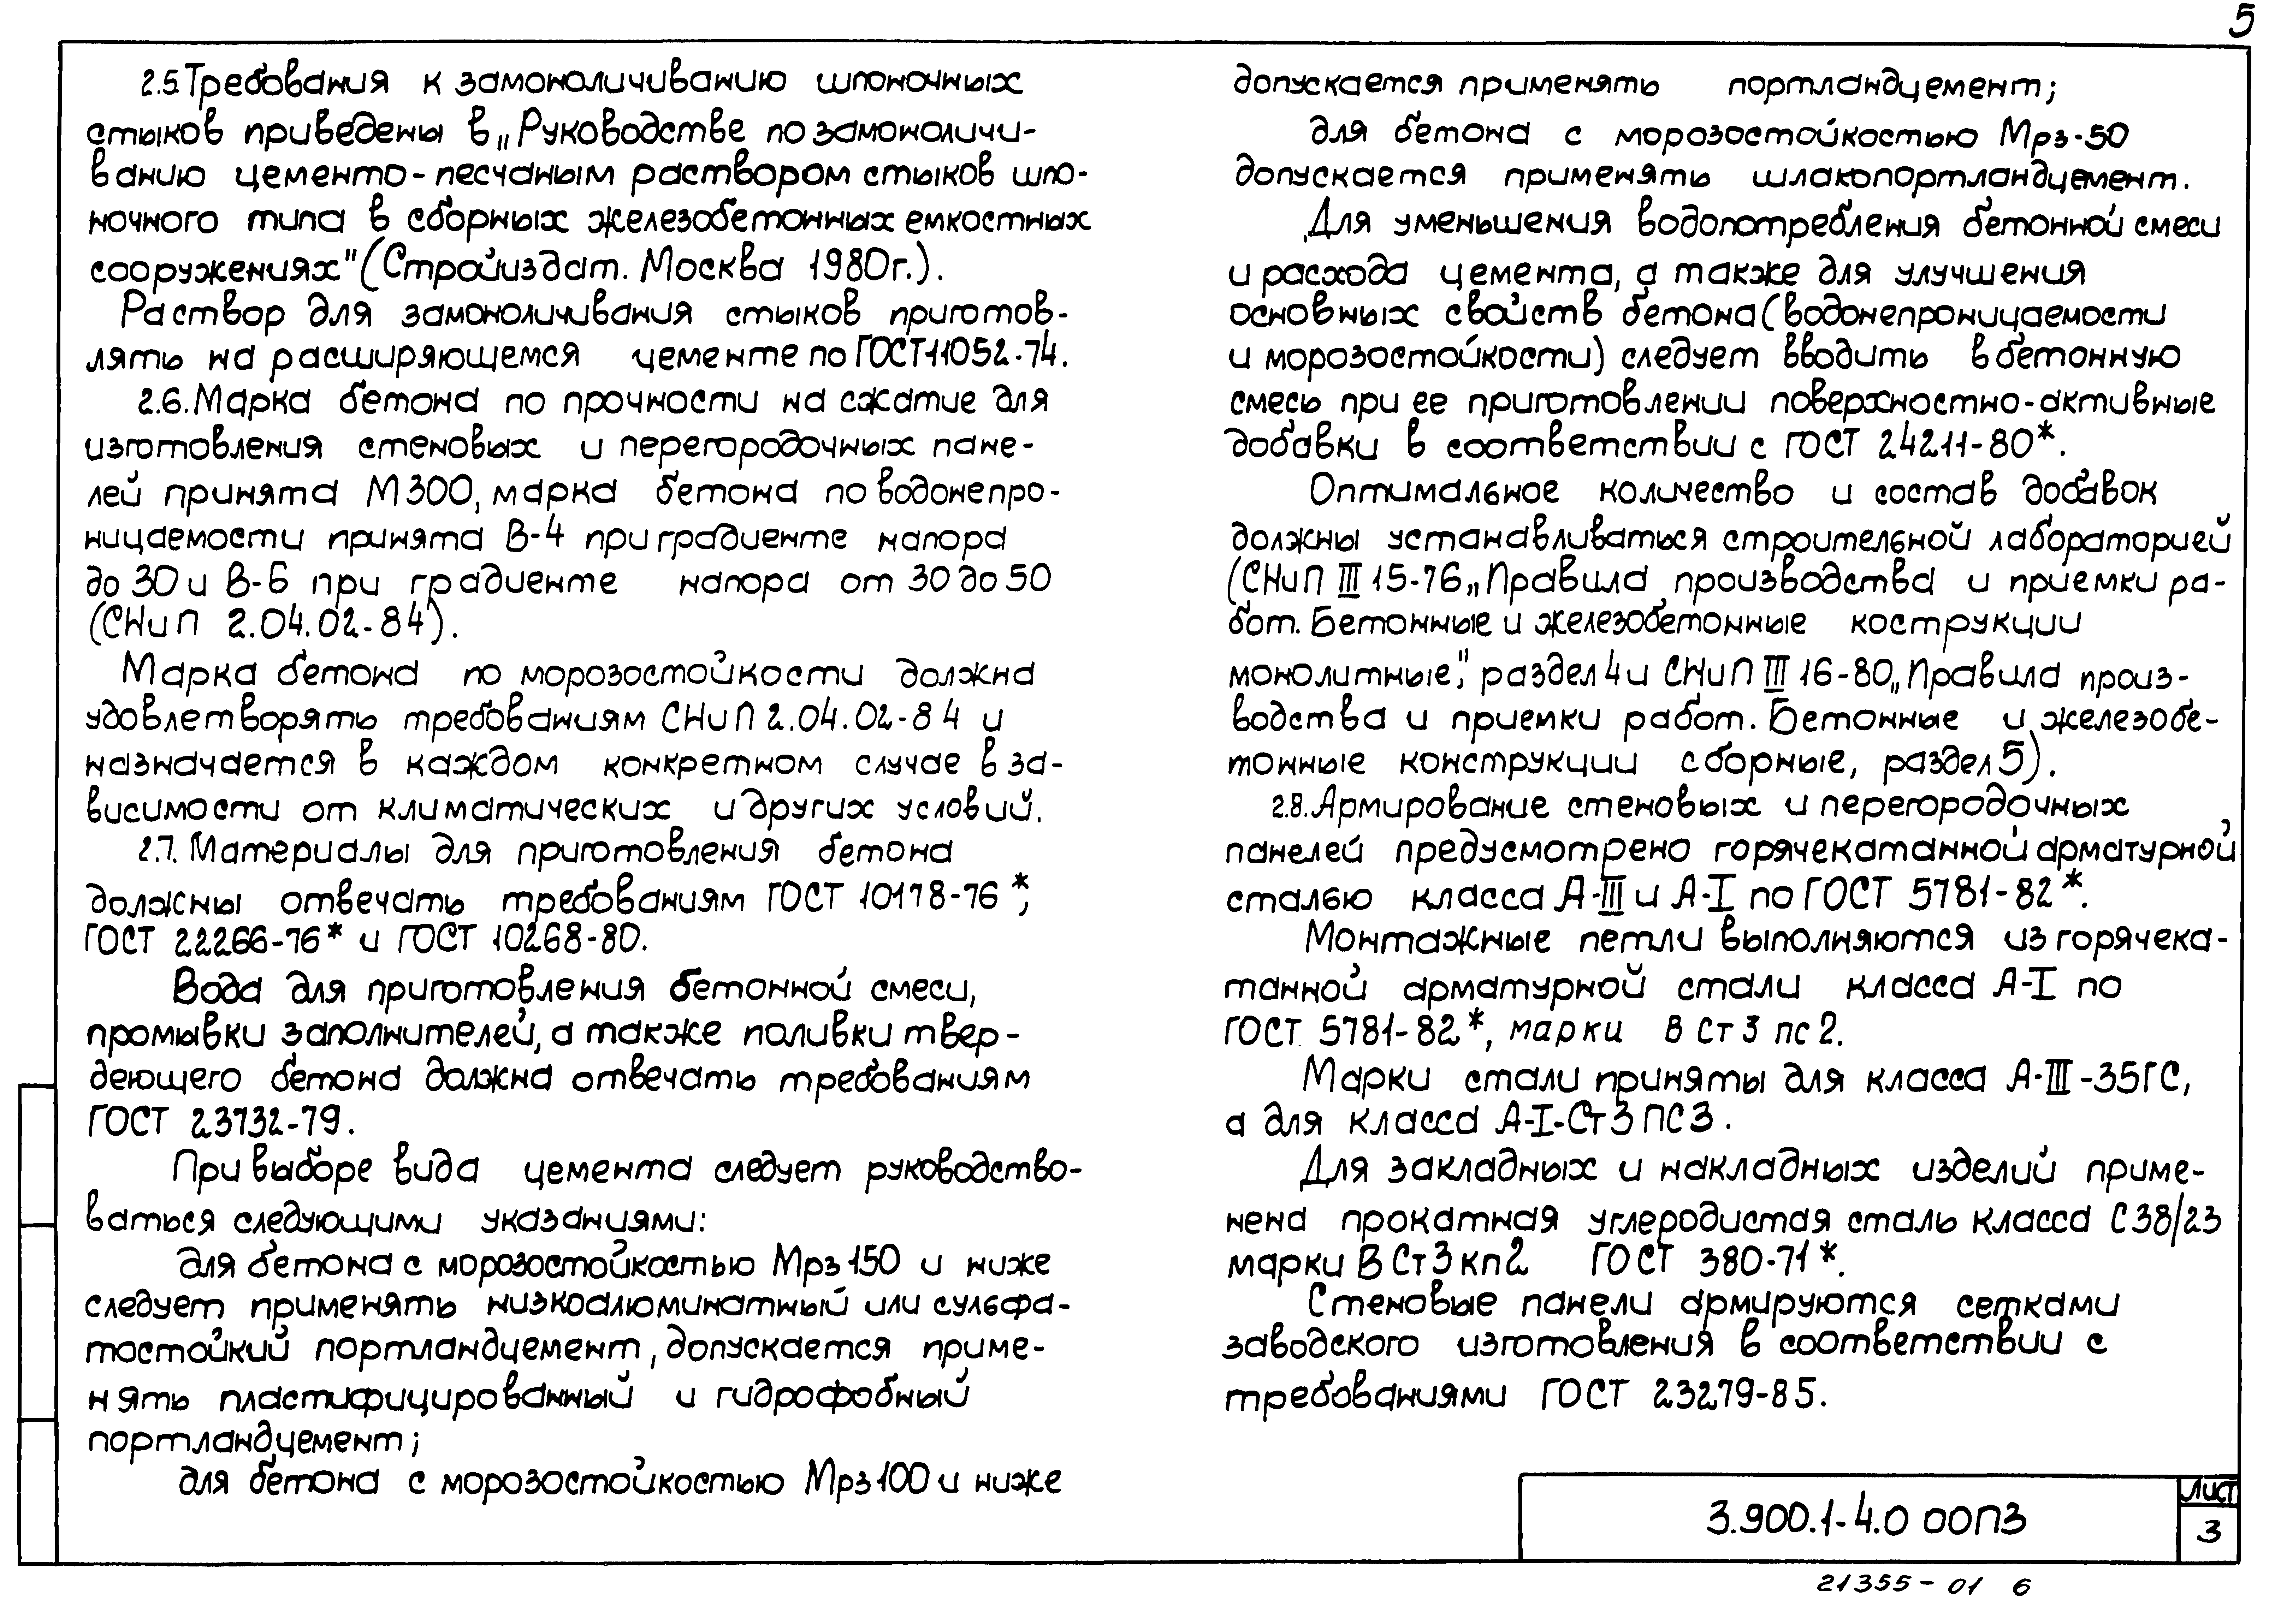 5
2.5. Требования к замоноличиванию шпоночных
стыков приведены в „Руководстве по замоноличи-
ванию цементо-песчаным раствором стыков шпо-
ночного типа в сборных железобетонных емкостных
сооружениях" (Стройиздат. Москва 1980г.).
Раствор для замоноличивания стыков приготов-
лять на расширяющемся цементе по ГОСТ 11052-74.
2.6. Марка бетона по прочности на сжатие для
изготовления стеновых и перегородочных пане-
лей принята М300, марка бетона по водонепро-
ницаемости принята В-4 при градиенте напора
до 30 и В-6 при градиенте напора от 30 до 50
(СНиП 2.04.02-84).
Марка бетона по морозостойкости должна
удовлетворять требованиям СНиП 2.04.02-84 и
назначается в каждом конкретном случае в за-
висимости от климатических и других условий.
2.7. Материалы для приготовления бетона
должны отвечать требованиям ГОСТ 10178-76*,
ГОСТ 22266-76* и ГОСТ 10268-80.
Вода для приготовления бетонной смеси,
промывки заполнителей, а также поливки твер-
деющего бетона должна отвечать требованиям
ГОСТ 23732-79.
При выборе вида цемента следует руководство-
ваться следующими указаниями:
для бетона с морозостойкостью Мрз 150 и ниже
следует применять низкоалюминатный или сульфа-
тостойкий портландцемент, допускается приме-
нять пластифицированный и гидрофобный
портландцемент;
для бетона с морозостойкостью Мрз 100 и ниже
допускается применять портландцемент;
для бетона с морозостойкостью Мрз-50
допускается применять шлакопортландцемент.
Для уменьшения водопотребления бетонной смеси
и расхода цемента, а также для улучшения
основных свойств бетона (водонепроницаемости
и морозостойкости) следует вводить в бетонную
смесь при ее приготовлении поверхностно-активные
добавки в соответствии с ГОСТ 24211-80*.
Оптимальное количество и состав добавок
должны устанавливаться строительной лабораторией
(СНиП III 15-76 „Правила производства и приемки ра-
бот. Бетонные и железобетонные кострукции
монолитные", раздел 4 и СНиП III 16-80 „Правила произ-
водства и приемки работ. Бетонные и железобе-
тонные конструкции сборные, раздел 5).
2.8. Армирование стеновых и перегородочных
панелей предусмотрено горячекатанной арматурной
сталью класса А-III и А-I по ГОСТ 5781-82*.
Монтажные петли выполняются из горячека-
танной арматурной стали класса А-I по
ГОСТ 5781-82*, марки ВСт3пс2.
Марки стали приняты для класса А-III-35ГС,
а для класса А-I-Ст3ПС3.
Для закладных и накладных изделий приме-
нена прокатная углеродистая сталь класса С38/23
марки ВСт3кп2 ГОСТ 380-71*.
Стеновые панели армируются сетками
заводского изготовления в соответствии с
требованиями ГОСТ 23279-85.
3.900.1-4.0 00ПЗ
Лист
3
21355-01 6